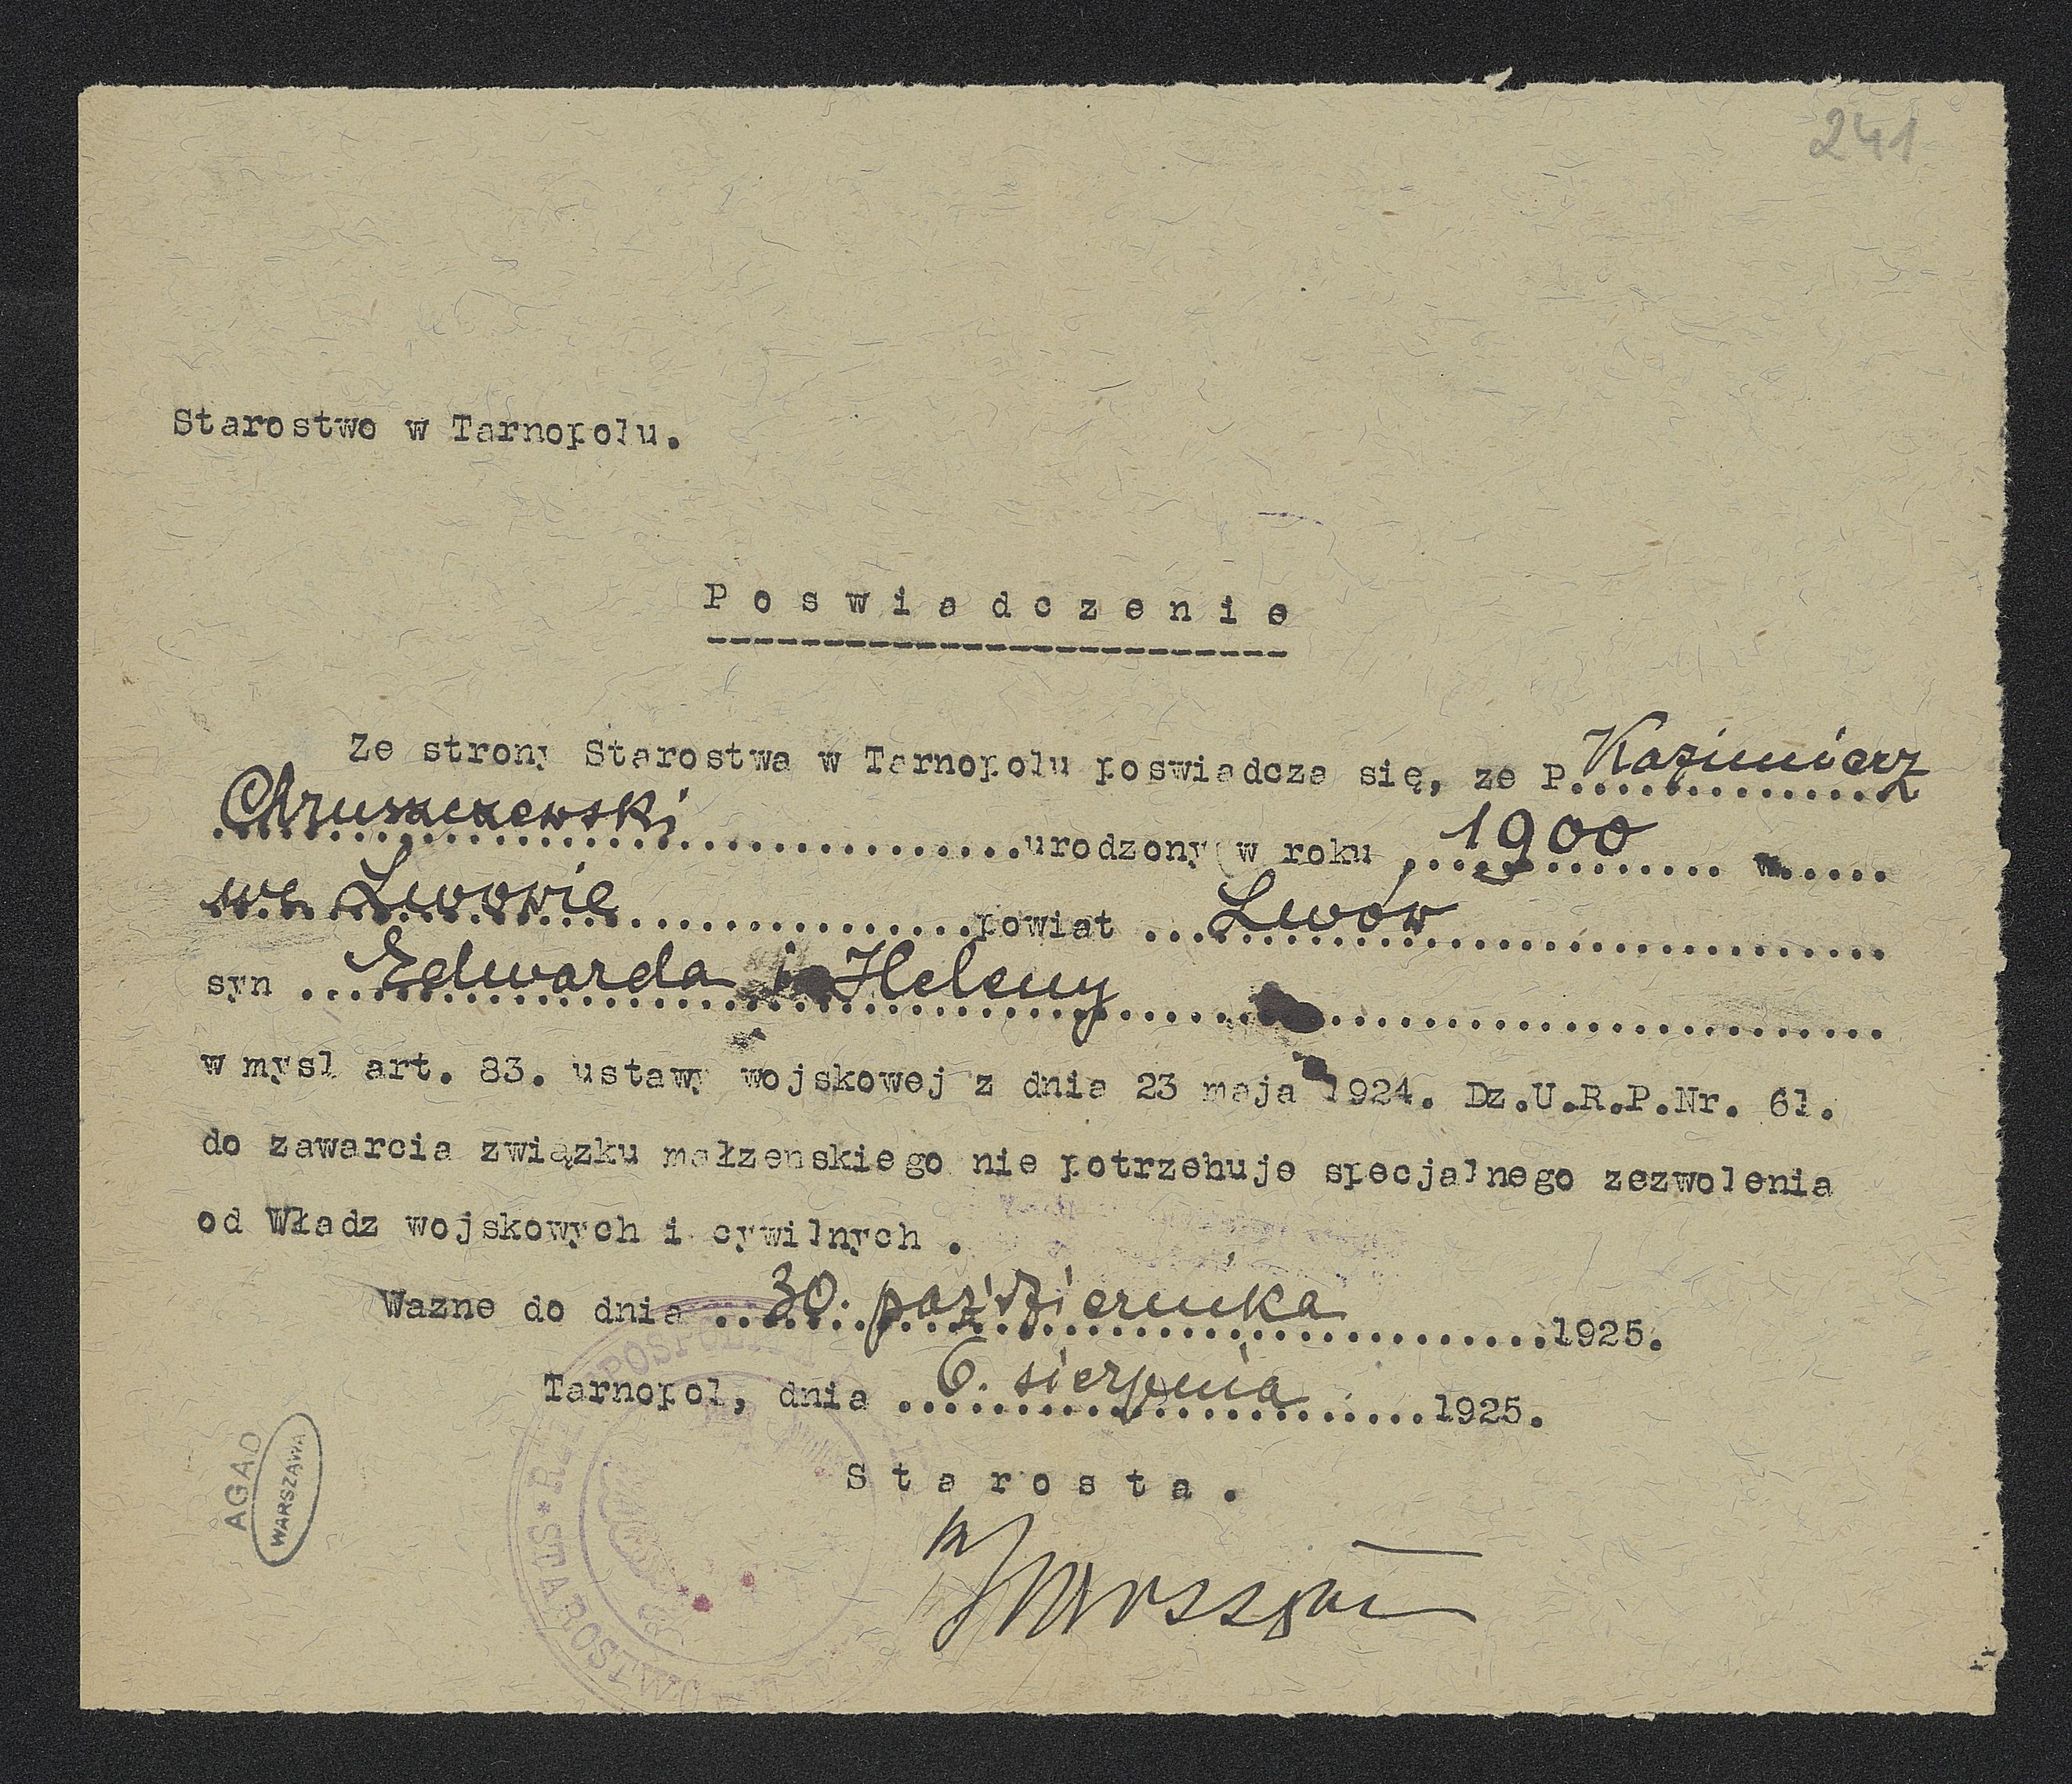 241
Starostwo w Tarnopolu.
Poswiadczenie
Ze strony Starostwa w Tarnopolu poswiadcza się, ze P. Kazimierz
Chruszczewski urodzony w roku 1900 w
we Lwowie powiat Lwów
syn Edwarda i Heleny
w mysl art. 83. ustawy wojskowej z dnia 23 maja 1924. Dz.U.R.P.Nr. 61.
do zawarcia związku małzenskiego nie potrzebuje specjalnego zezwolenia
od Władz wojskowych i cywilnych .
Wazne do dnia 30. października 1925.
Tarnopol, dnia 6. sierpnia 1925.
Starosta.
AGAD
WARSZAWA
STAROSTWO